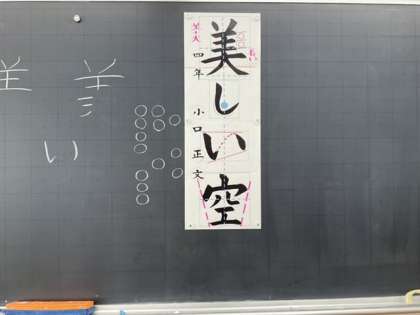 美しい空
四年 小口正文
い